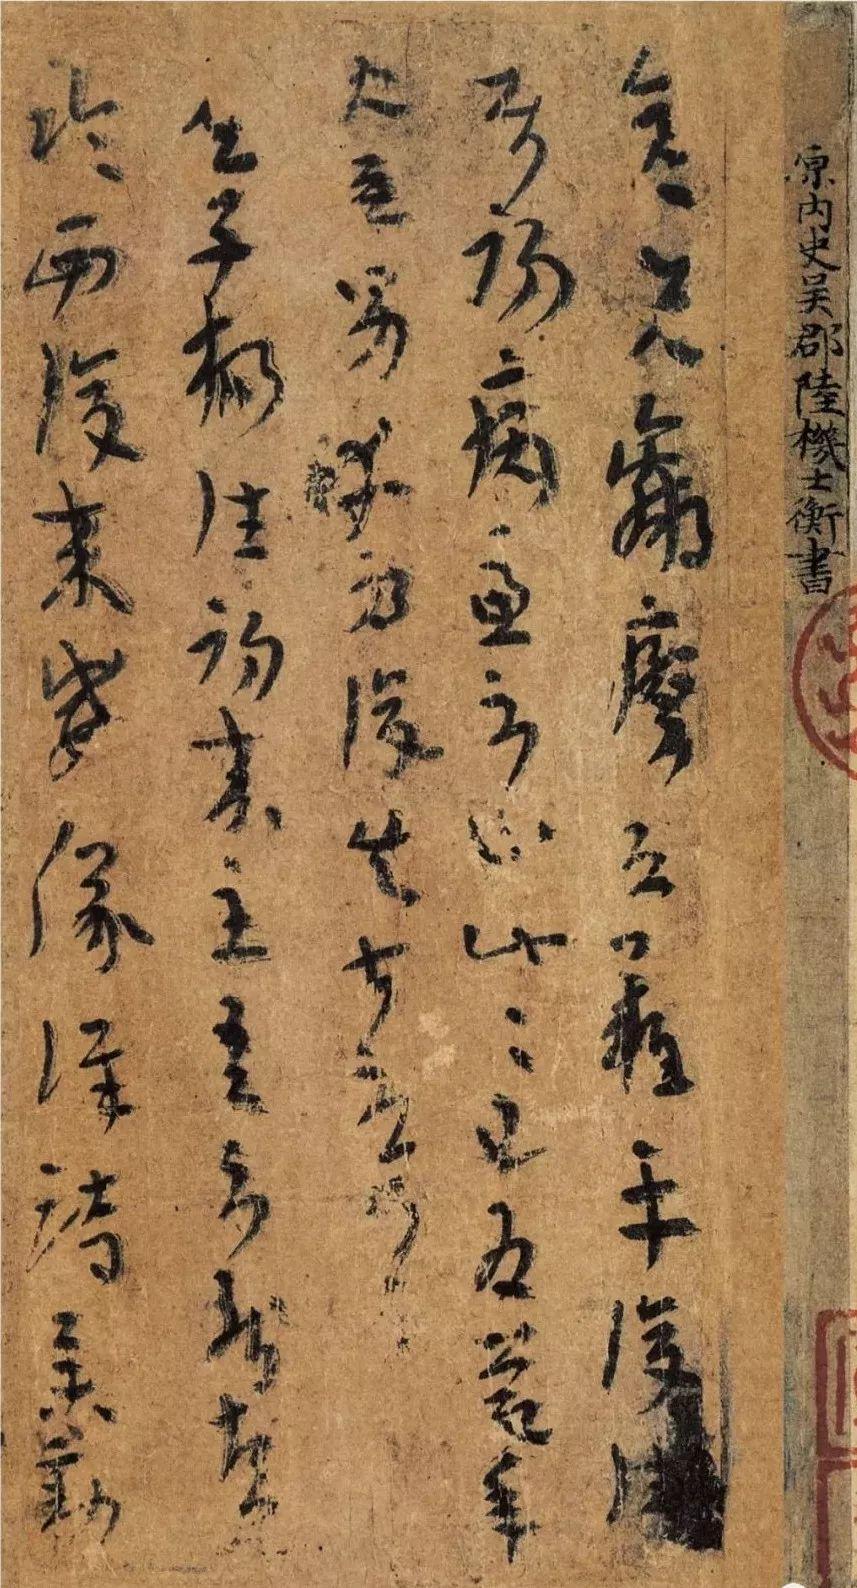 原內史吳郡陸機士衡書
彥先羸瘵恐難平復往
屬初病慮不止此此已為慶承
使唯男幸為復失前憂耳
吳子楊往初來主吾不能盡
臨西復來威儀詳跱舉動